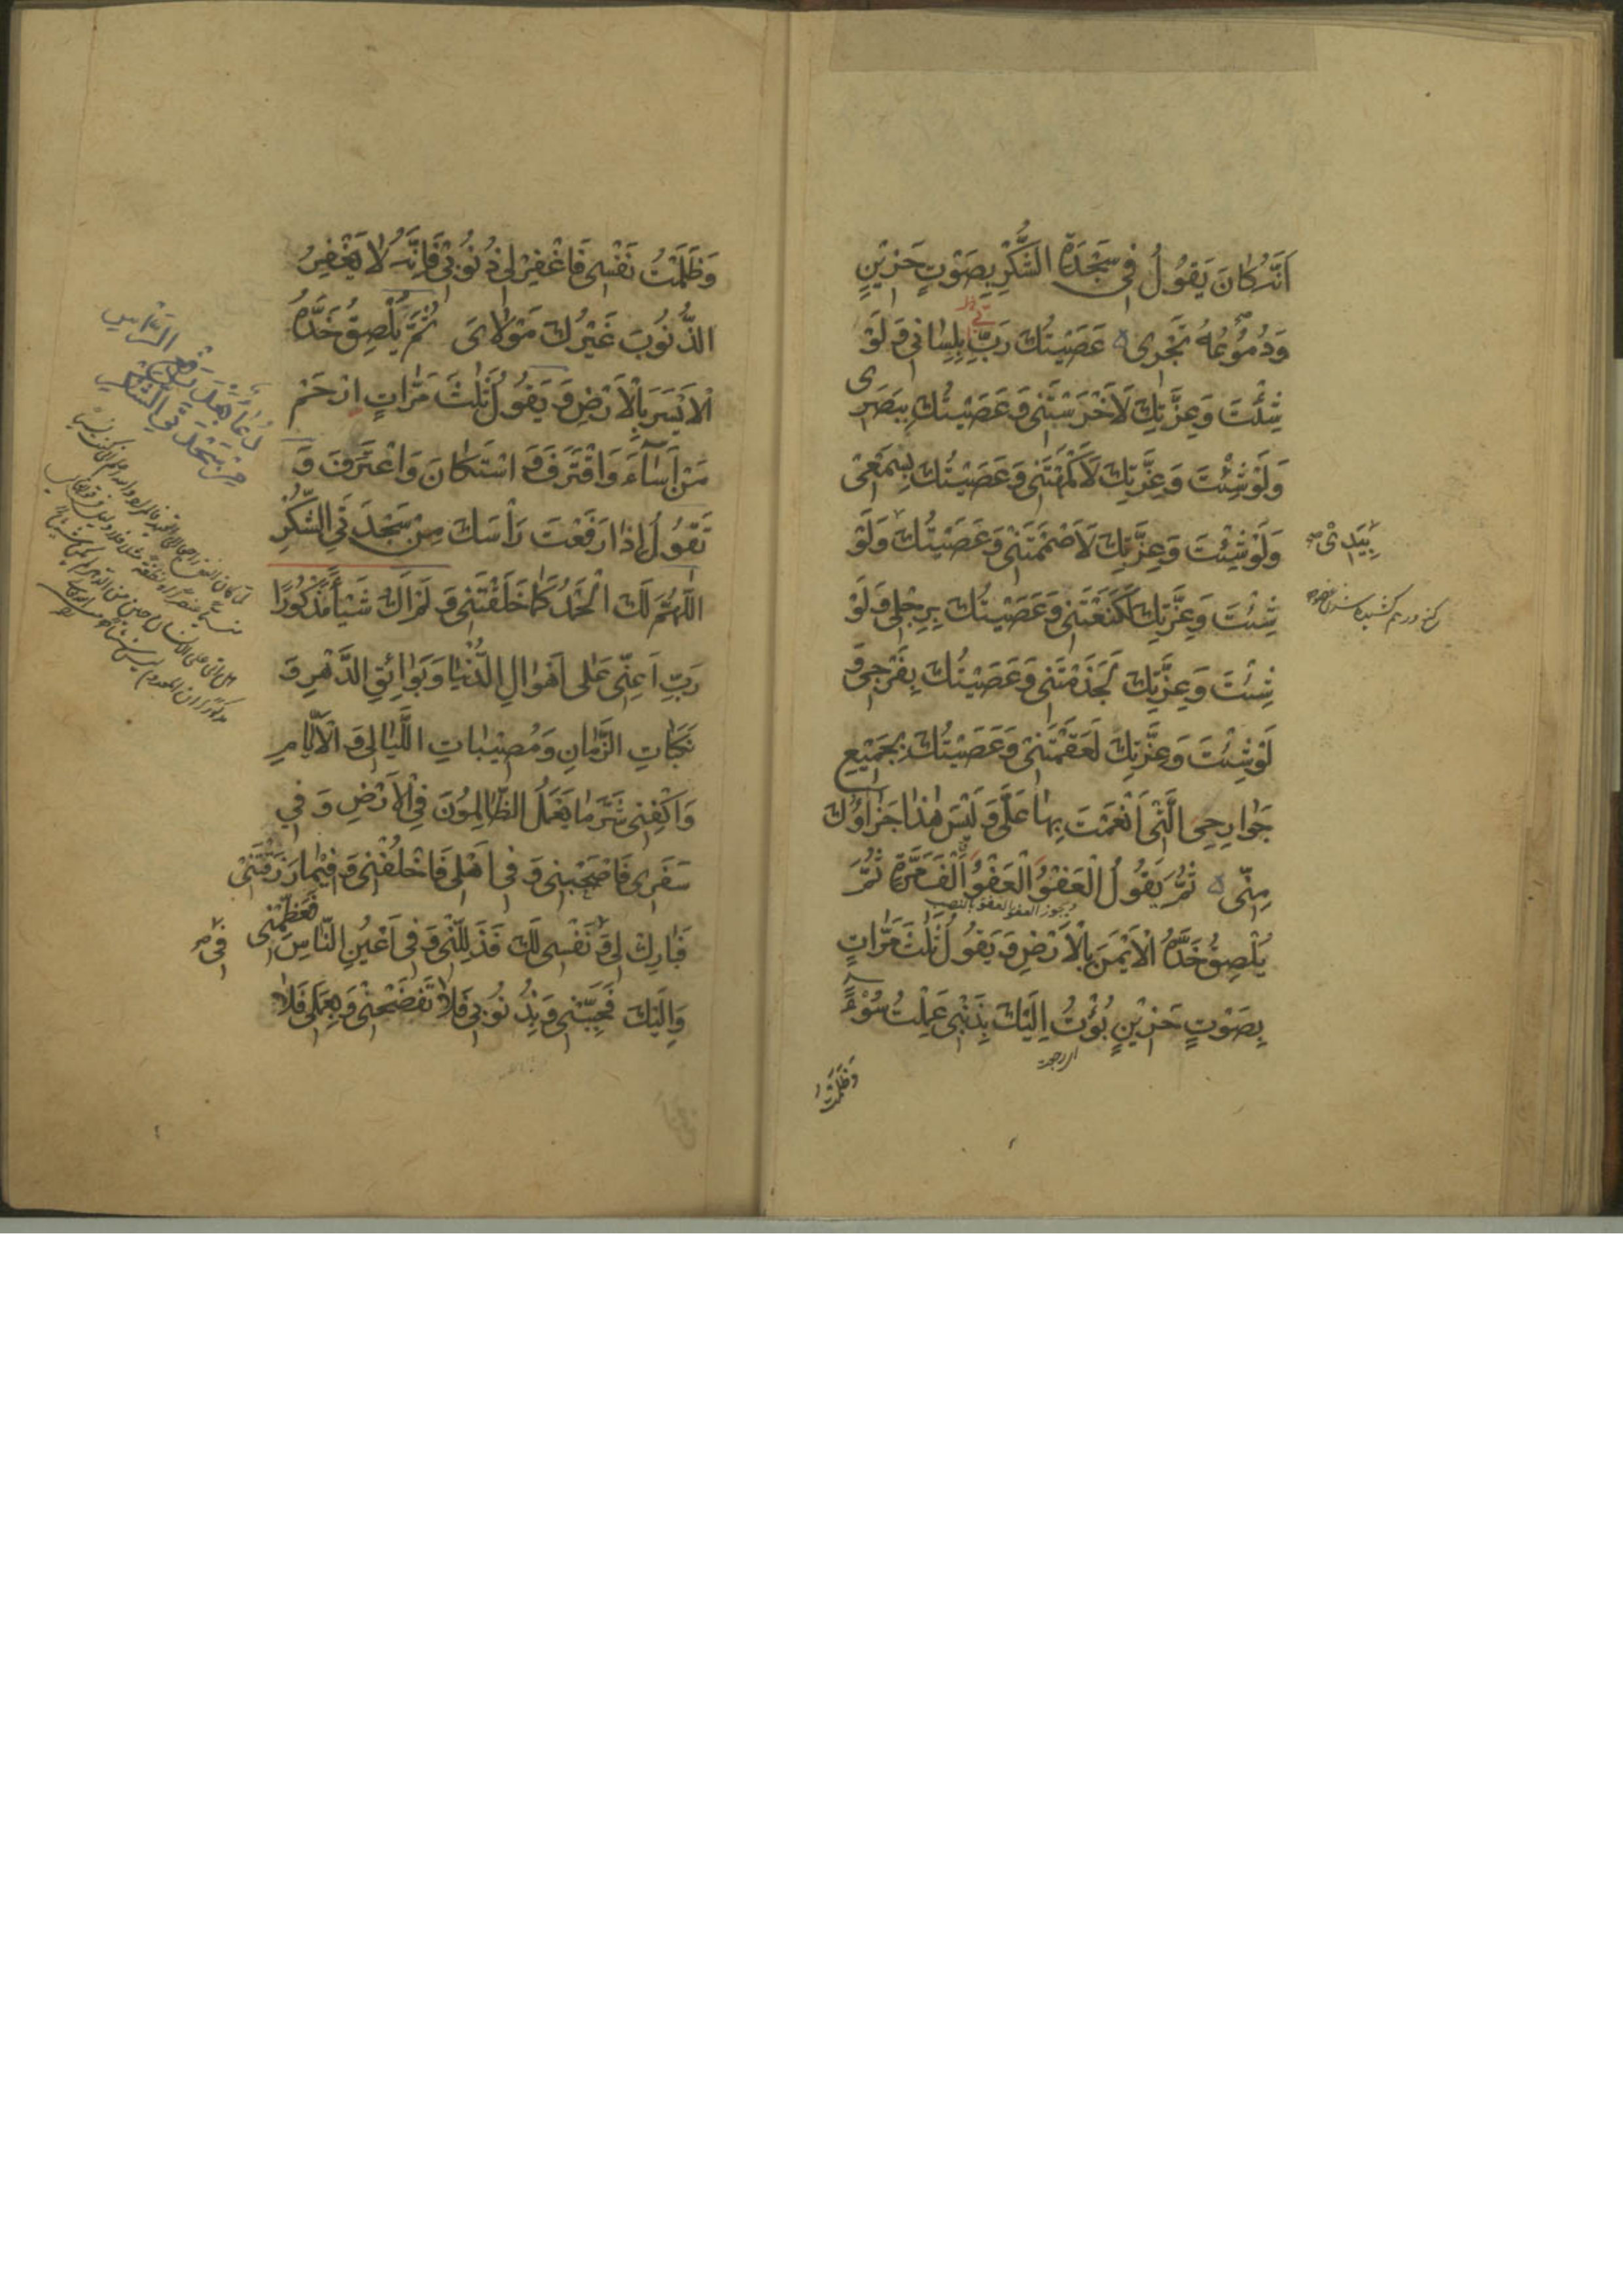 اَنَّهُ كَانَ يَقُولُ فِي سَجْدَةِ الشُّكْرِ بِصَوْتٍ حَزِيْنٍ
وَدُمُوْعُهُ تَجْرِى عَصَيْتُكَ رَبِّ بِلِسَانِى وَ لَوْ
شِئْتَ وَعِزَّتِكَ لَاَخْرَسْتَنِى وَعَصَيْتُكَ بِبَصَرِى
وَلَوْ شِئْتَ وَعِزَّتِكَ لَاَكْمَهْتَنِى وَعَصَيْتُكَ بِسَمْعِى
وَلَوْ شِئْتَ وَعِزَّتِكَ لَاَصْمَمْتَنِى وَعَصَيْتُكَ وَلَوْ
بِيَدِى
شِئْتَ وَعِزَّتِكَ لَكَنَّعْتَنِى وَعَصَيْتُكَ بِرِجْلِى وَلَوْ
شِئْتَ وَعِزَّتِكَ لَجَذَمْتَنِى وَعَصَيْتُكَ بِفَرْجِى وَ
لَوْ شِئْتَ وَعِزَّتِكَ لَعَقَمْتَنِى وَعَصَيْتُكَ بِجَمِيْعِ
جَوَارِحِى الَّتِى اَنْعَمْتَ بِهَا عَلَىَّ وَلَيْسَ هٰذَا جَزَاؤُكَ
مِنِّى ثُمَّ يَقُولُ الْعَفْوُ الْعَفْوُ اَلْفَ مَرَّةٍ ثُمَّ
ويجوز العفو العفو بالنصب
يُلْصِقُ خَدَّهُ الْاَيْمَنَ بِالْاَرْضِ وَ يَقُولُ ثَلٰثَ مَرَّاتٍ
بِصَوْتٍ حَزِيْنٍ بُؤْتُ اِلَيْكَ بِذَنْبِى عَمِلْتُ سُوْءً
اى رجعت
وَظَلَمْتُ
وَظَلَمْتُ نَفْسِى فَاغْفِرْ لِى ذُنُوْبِى فَاِنَّهُ لَا يَغْفِرُ
الذُّنُوْبَ غَيْرُكَ مَوْلَاىَ ثُمَّ يُلْصِقُ خَدَّهُ
الْاَيْسَرَ بِالْاَرْضِ وَ يَقُولُ ثَلٰثَ مَرَّاتٍ ارْحَمْ
مَنْ اَسَآءَ وَاقْتَرَفَ وَ اسْتَكَانَ وَاعْتَرَفَ وَ
تَقُولُ اِذَا رَفَعْتَ رَأْسَكَ مِنْ سَجْدَتَىِ الشُّكْرِ
اللّٰهُمَّ لَكَ الْحَمْدُ كَمَا خَلَقْتَنِى وَ لَمْ اَكُ شَيْأً مَذْكُورًا
رَبِّ اَعِنِّى عَلٰى اَهْوَالِ الدُّنْيَا وَبَوَائِقِ الدَّهْرِ وَ
نَكَبَاتِ الزَّمَانِ وَ مُصِيْبَاتِ اللَّيَالِى وَ الْاَيَّامِ
وَاكْفِنِى شَرَّ مَا يَعْمَلُ الظَّالِمُوْنَ فِى الْاَرْضِ وَ فِى
سَفَرِى فَاصْحَبْنِى وَ فِى اَهْلِى فَاخْلُفْنِى وَ فِيْمَا رَزَقْتَنِى
فَبَارِكْ لِى وَ نَفْسِى لَكَ فَذَلِّلْنِى وَ فِى اَعْيُنِ النَّاسِ فَعَظِّمْنِى
فى
وَ اِلَيْكَ فَحَبِّبْنِى وَ بِذُنُوْبِى فَلَا تَفْضَحْنِى وَ بِعَمَلِى فَلَا
دُعَاءٌ بَعْدَ رَفْعِ الرَّاْسِ
مِنْ سَجْدَتَىِ الشُّكْرِ